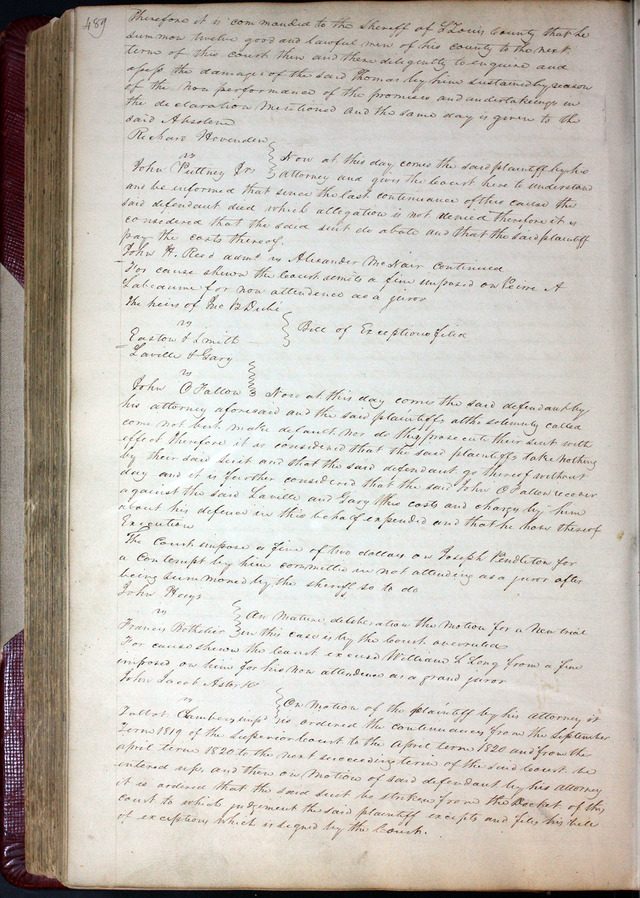 489
Therefore it is commanded to the Sheriff of St Louis County that he
summon twelve good and lawful men of his county to the next
term of this court then and there diligently to enquire and
assess the damages of the said Thomas by him sustained by reason
of the non performance of the promises and undertakings in
the declaration mentioned and the same day is given to the
said Absolem
Richard Hovenden
vs
John Puttney Jr Now at this day comes the said plaintiff by his
attorney and gives the Court here to understand
and be informed that since the last continuance of this cause the
said defendant died which allegation is not denied therefore it is
considered that the said suit do abate and that the said plaintiff
pay the costs thereof
John H. Reed admr vs Alexander McNair continued
For cause shewn the Court remits a fine imposed on Pierre A
Labeaume for non attendence as a juror
The heirs of Jno B Dube
vs Bill of Exceptions filed
Easton & Smith
Laville & Gary
vs
John O Fallon Now at this day come the said defendant by
his attorney aforesaid and the said plaintiffs altho solemnly called
come not but make default nor do they prosecute their suit with
effect Therefore it is considered that the said plaintiffs take nothing
by their said suit and that the said defendant go thereof without
day and it is further considered that the said John O Fallon recover
against the said Laville and Gary his costs and charges by him
about his defence in this behalf expended and that he have thereof
Execution
The Court impose a fine of two dollars on Joseph Pendleton for
a Contempt by him committed in not attending as a juror after
being summoned by the sheriff so to do
John Hays
vs On Mature deliberation the Motion for a New trial
Francis Rotheter in this case is by the Court overruled
For cause shewn the Court excused William L Long from a fine
imposed on him for his non attendence as a grand juror
John Jacob Astor &c
vs On Motion of the plaintiff by his attorney it
Talbot Chambers impd is ordered the continuances from the September
Term 1819 of the Superior Court to the April term 1820 and from the
april term 1820 to the next succeeding term of the said Court be
entered up, and then on Motion of said defendant by his attorney
it is ordered that the said suit be striken from the Docket of this
court to which judgement the said plaintiff excepts and files his bill
of exceptions which is signed by the Court.